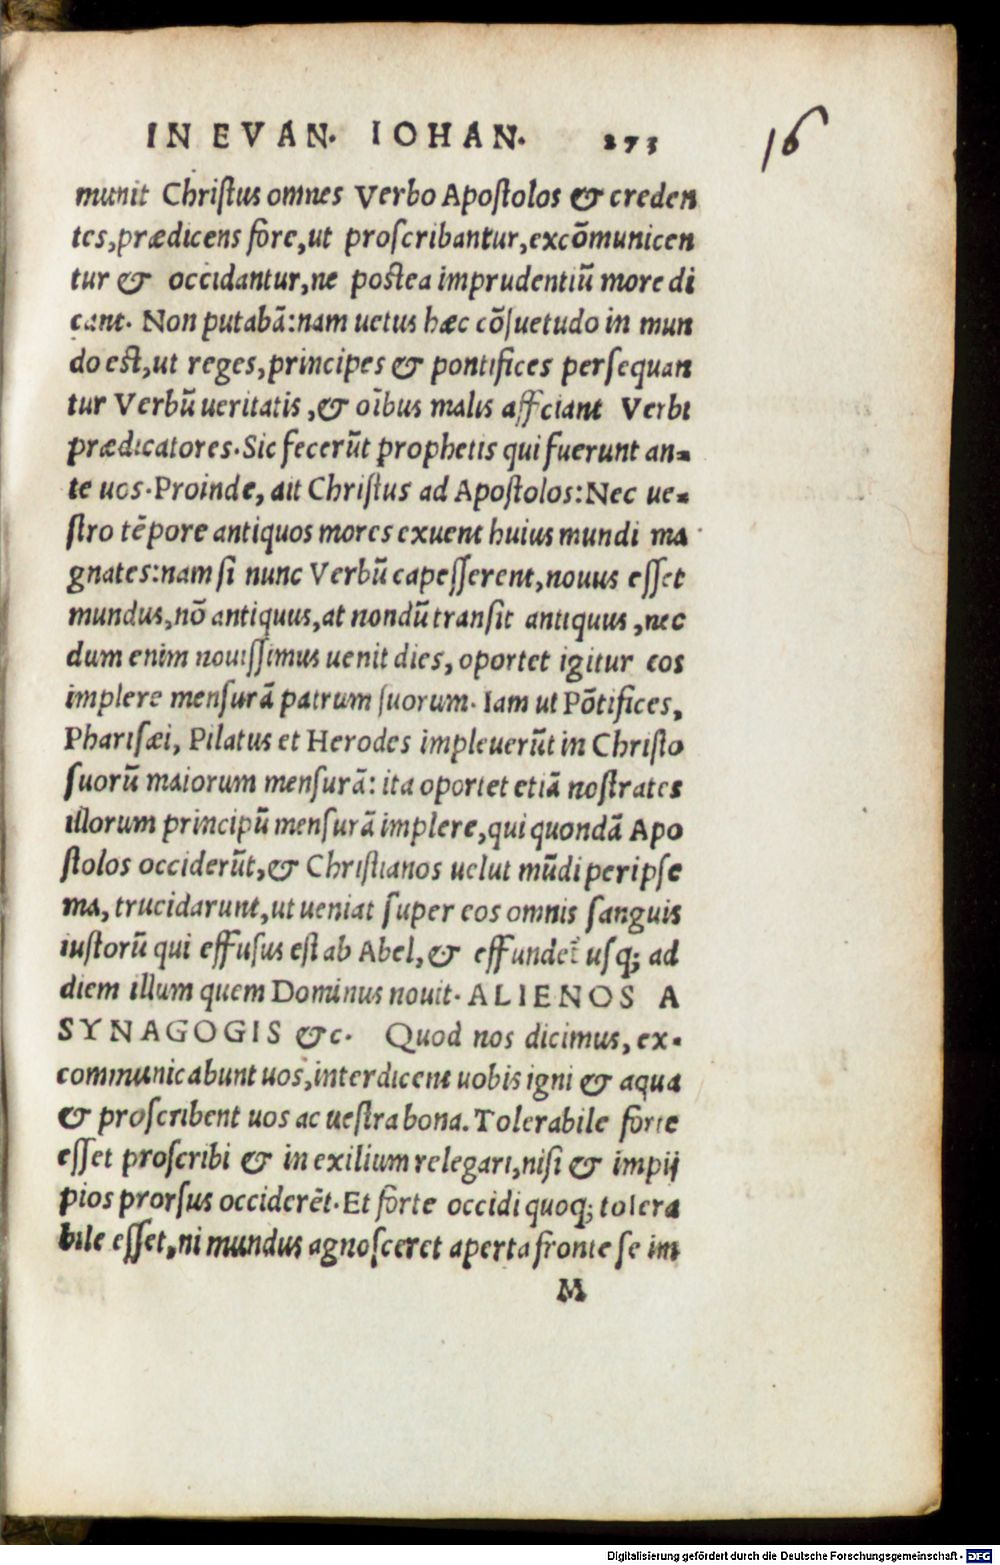 IN EVAN. IOHAN. 273
16
munit Christus omnes Verbo Apostolos & creden
tes, prædicens fore, ut proscribantur, excōmunicen
tur & occidantur, ne postea imprudentiū more di
cant. Non putabā: nam uetus hæc cōsuetudo in mun
do est, ut reges, principes & pontifices persequan
tur Verbū ueritatis, & oībus malis afficiant Verbi
prædicatores. Sic fecerūt prophetis qui fuerunt an-
te uos. Proinde, ait Christus ad Apostolos: Nec ue-
stro tēpore antiquos mores exuent huius mundi ma
gnates: nam si nunc Verbū capesserent, nouus esset
mundus, nō antiquus, at nondū transit antiquus, nec
dum enim nouissimus uenit dies, oportet igitur eos
implere mensurā patrum suorum. Iam ut Pōtifices,
Pharisæi, Pilatus et Herodes impleuerūt in Christo
suorū maiorum mensurā: ita oportet etiā nostrates
illorum principū mensurā implere, qui quondā Apo
stolos occiderūt, & Christianos uelut mūdi peripse
ma, trucidarunt, ut ueniat super eos omnis sanguis
iustorū qui effusus est ab Abel, & effundet̄ usq; ad
diem illum quem Dominus nouit. ALIENOS A
SYNAGOGIS &c. Quod nos dicimus, ex-
communicabunt uos, interdicent uobis igni & aqua
& proscribent uos ac uestra bona. Tolerabile forte
esset proscribi & in exilium relegari, nisi & impij
pios prorsus occiderēt. Et forte occidi quoq; tolera
bile esset, ni mundus agnosceret aperta fronte se im
M
Digitalisierung gefördert durch die Deutsche Forschungsgemeinschaft - DFG